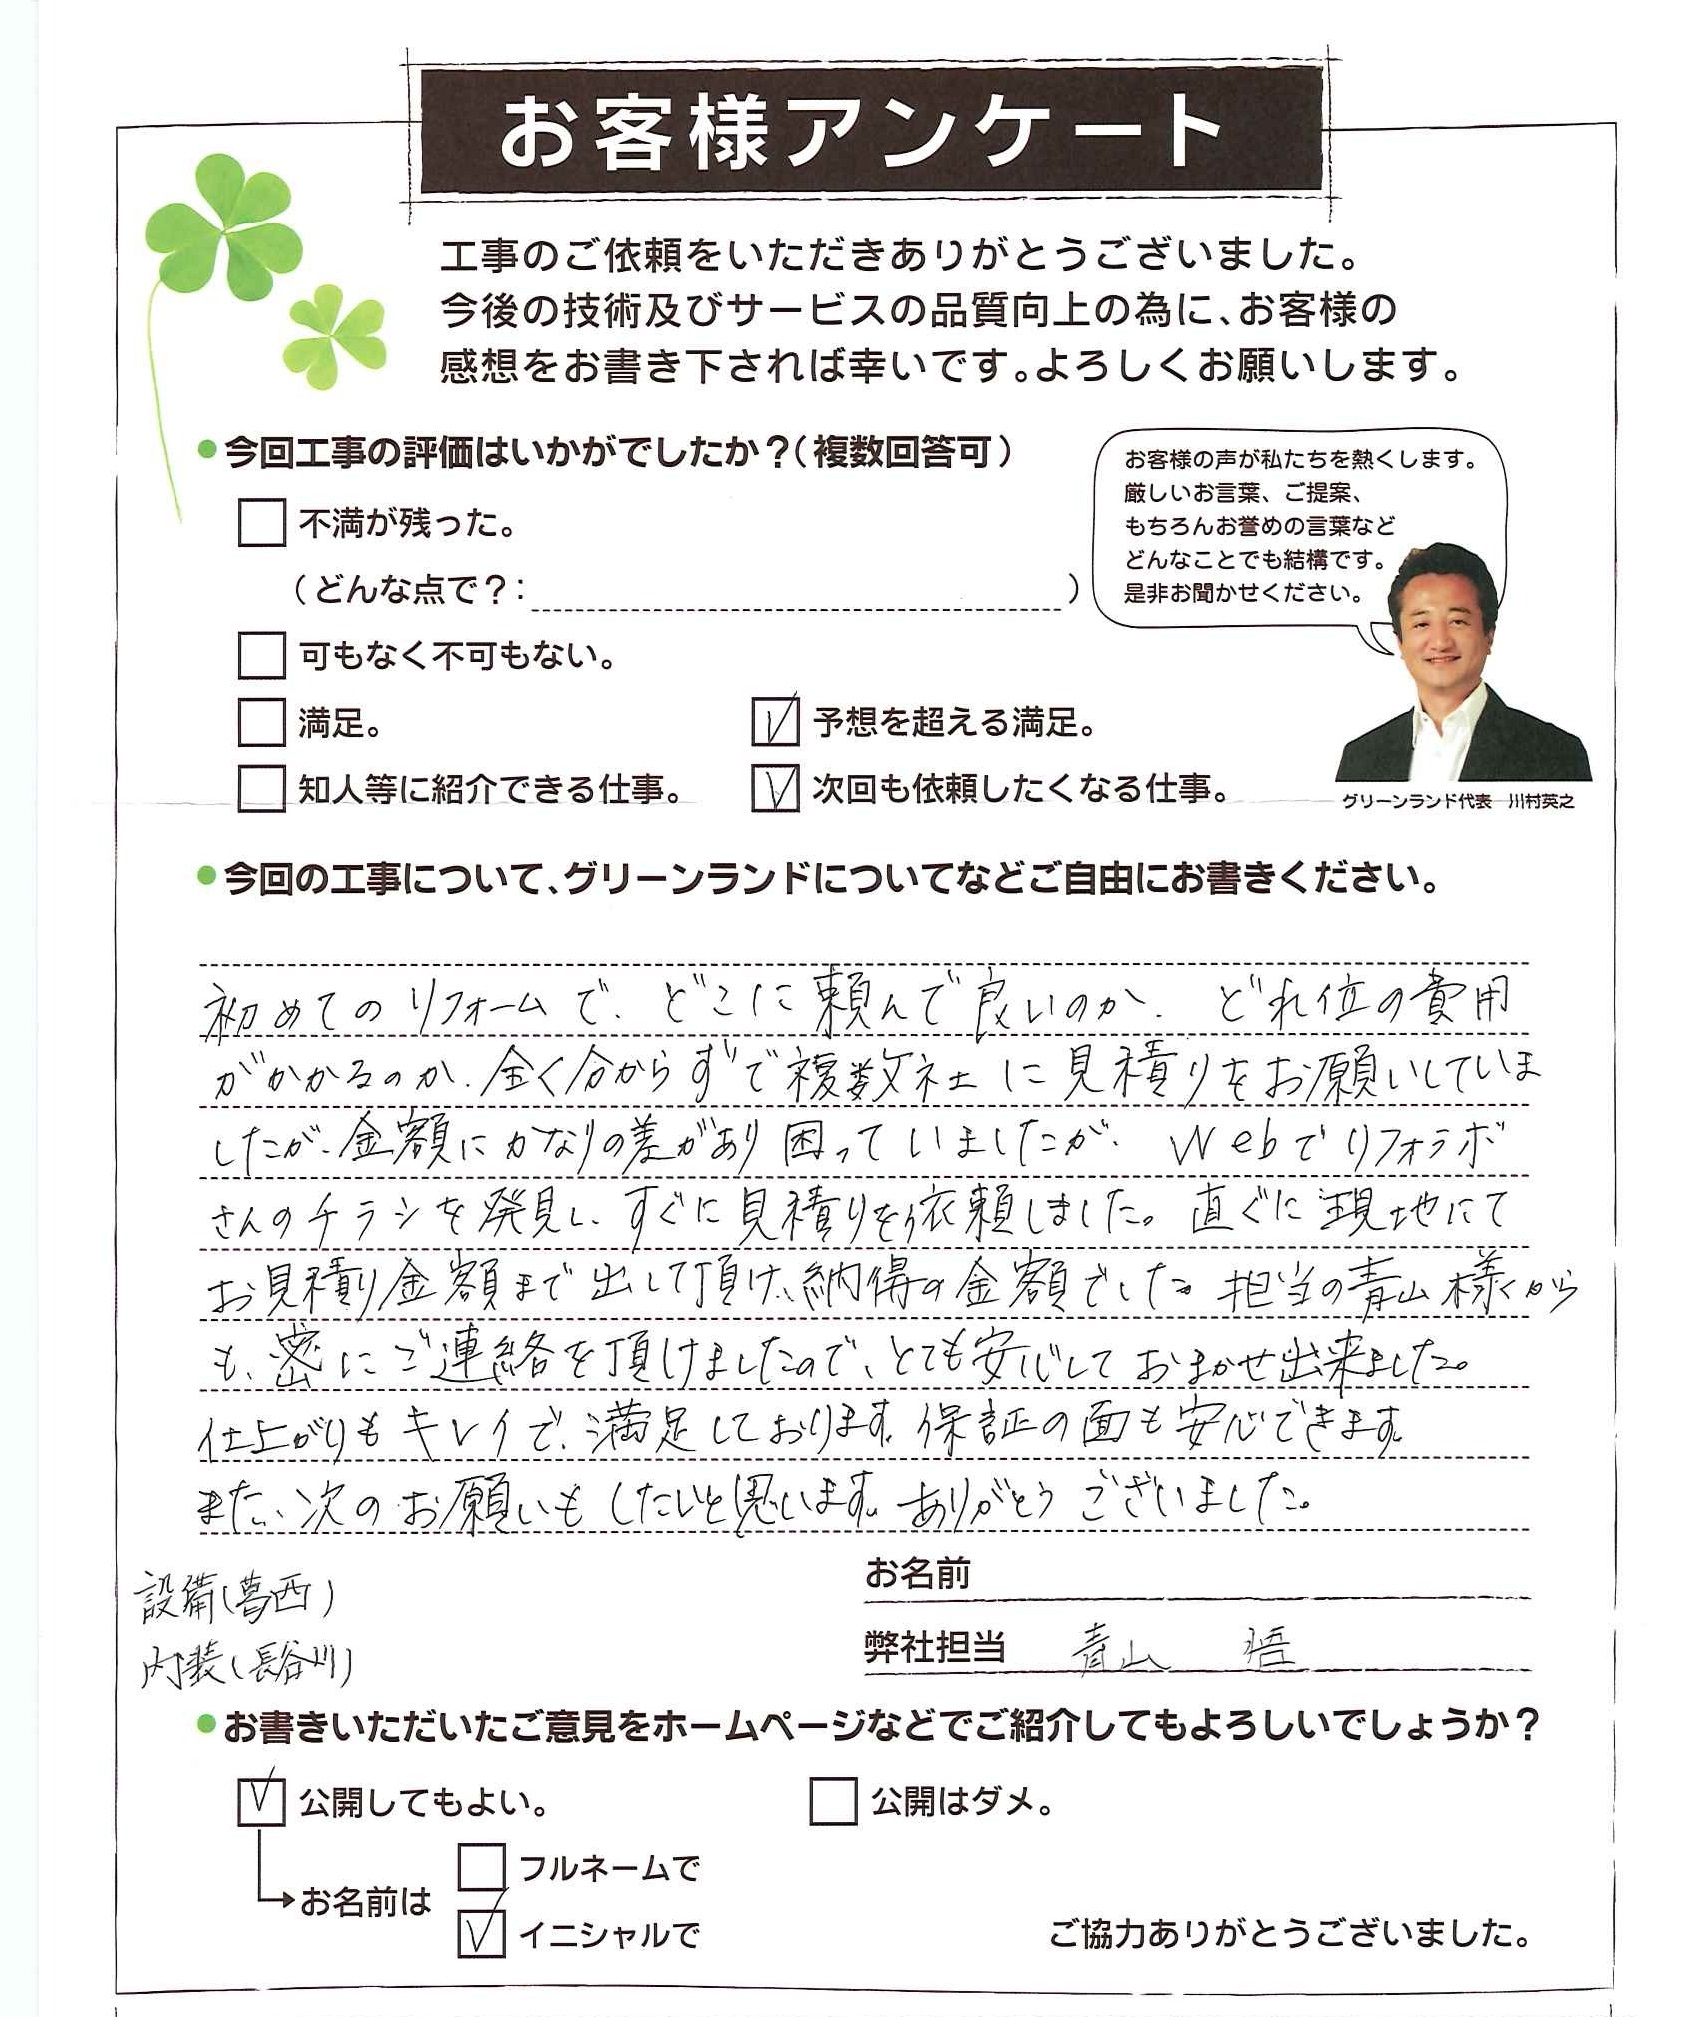 お客様アンケート
工事のご依頼をいただきありがとうございました。
今後の技術及びサービスの品質向上の為に、お客様の
感想をお書き下されば幸いです。よろしくお願いします。
●今回工事の評価はいかがでしたか？（複数回答可）
お客様の声が私たちを熱くします。
厳しいお言葉、ご提案、
もちろんお誉めの言葉など
どんなことでも結構です。
是非お聞かせください。
グリーンランド代表　川村英之
□ 不満が残った。
（どんな点で？：　　　　）
□ 可もなく不可もない。
□ 満足。　☑ 予想を超える満足。
□ 知人等に紹介できる仕事。　☑ 次回も依頼したくなる仕事。
●今回の工事について、グリーンランドについてなどご自由にお書きください。
初めてのリフォームで、どこに頼んで良いのか、どれ位の費用
がかかるのか、全く分からずで複数社に見積りをお願いしていま
したが、金額にかなりの差があり困っていましたが、Webでリフォラボ
さんのチラシを発見し、すぐに見積りを依頼しました。直ぐに現地にて
お見積り金額まで出して頂け、納得の金額でした。担当の青山様から
も、密にご連絡を頂けましたので、とても安心しておまかせ出来ました。
仕上がりもキレイで、満足しております。保証の面も安心できます。
また、次のお願いもしたいと思います。ありがとうございました。
設備(葛西)
内装(長谷川)
お名前
弊社担当　青山　悟
●お書きいただいたご意見をホームページなどでご紹介してもよろしいでしょうか？
☑ 公開してもよい。　□ 公開はダメ。
→お名前は
□ フルネームで
☑ イニシャルで
ご協力ありがとうございました。